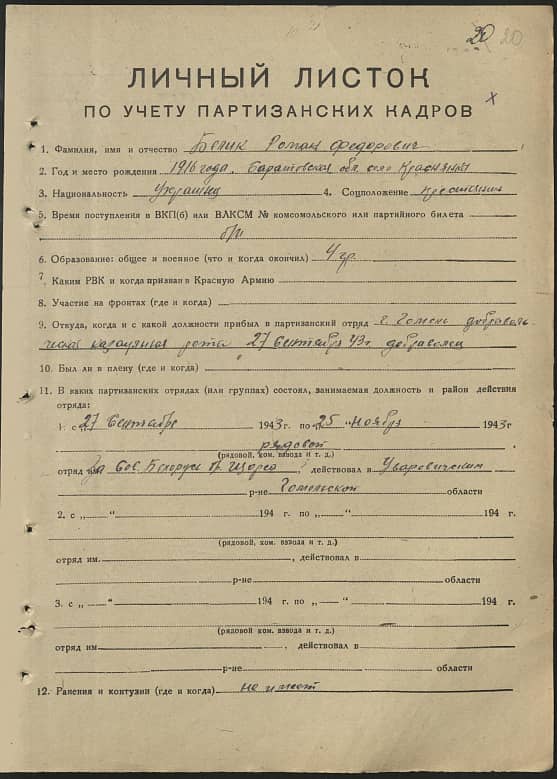 20 20
ЛИЧНЫЙ ЛИСТОК
ПО УЧЕТУ ПАРТИЗАНСКИХ КАДРОВ
х
1. Фамилия, имя и отчество Белик Роман Федорович
2. Год и место рождения 1916 года. обл. село
3. Национальность Украинец 4. Соцположение крестьянин
5. Время поступления в ВКП(б) или ВЛКСМ № комсомольского или партийного билета
б/п
6. Образование: общее и военное (что и когда окончил) 4 гр.
7. Каким РВК и когда призван в Красную Армию
8. Участие на фронтах (где и когда)
9. Откуда, когда и с какой должности прибыл в партизанский отряд г. Гомель
рота 27 Сентября 43 г. доброволец
10. Был ли в плену (где и когда)
11. В каких партизанских отрядах (или группах) состоял, занимаемая должность и район действия
отряда:
1. с „27 Сентября 1943 г. по „25 “ ноября 1943 г
рядовой
(рядовой, ком. взвода и т. д.)
отряд им За Сов. Белорусь бр. Щорса, действовал в Уваровичским
р-не Гомельской области
2. с „ “ 194 г. по „ “ 194 г.
(рядовой, ком. взвода и т. д.)
отряд им. , действовал в
р-не области
3. с „ “ 194 г. по „ “ 194 г.
(рядовой ком. взвода и т. д.)
отряд им , действовал в
р-не области
12. Ранения и контузии (где и когда) не имеет